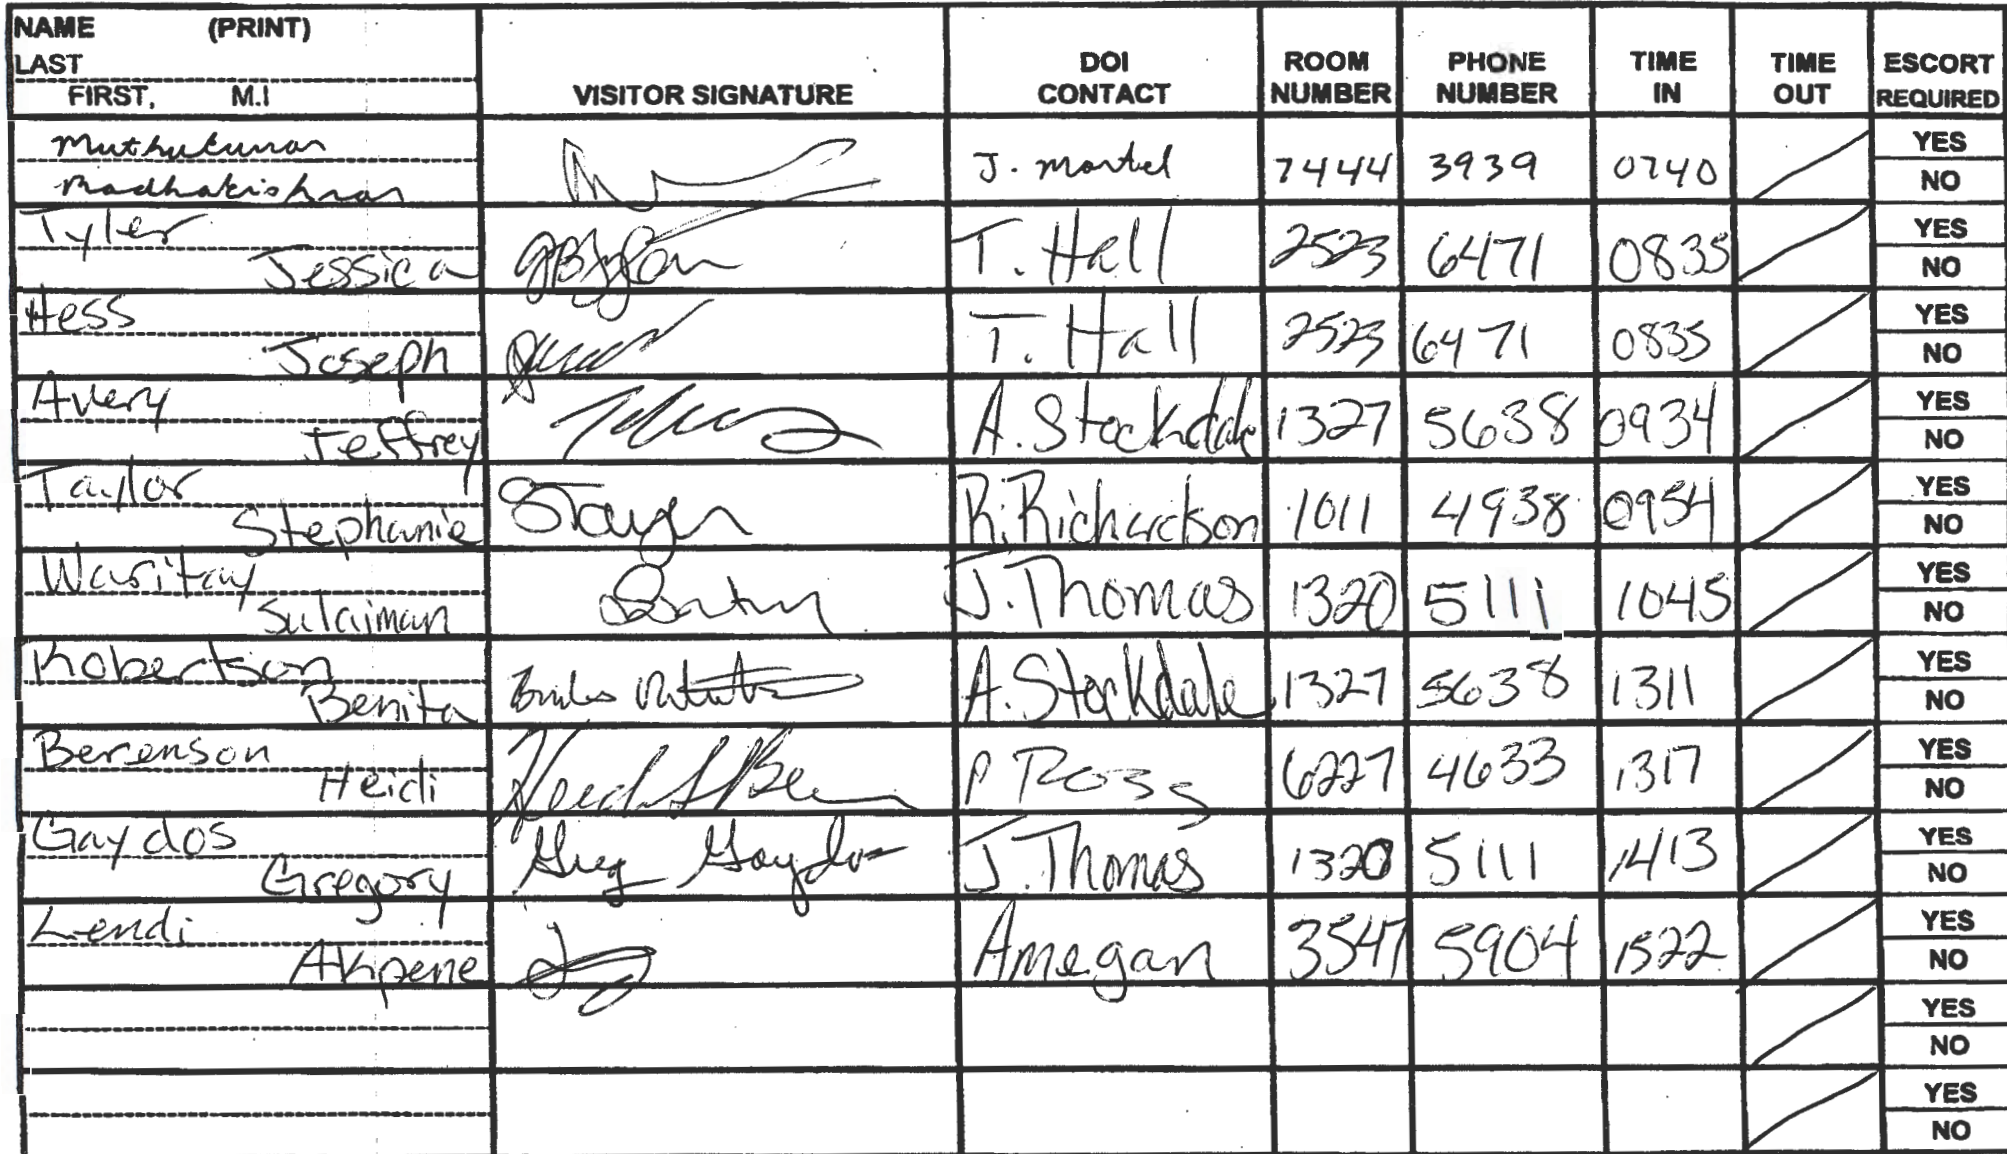 NAME (PRINT)
LAST
FIRST, M.I
VISITOR SIGNATURE
DOI CONTACT
ROOM NUMBER
PHONE NUMBER
TIME IN
TIME OUT
ESCORT REQUIRED
Muthukumar
Radhakrishnan J. Martel 7444 3939 0740 YES NO
Tyler
Jessica T. Hall 2523 6471 0835 YES NO
Hess
Joseph T. Hall 2523 6471 0835 YES NO
Avery
Jeffrey A. Stockdale 1327 5638 0934 YES NO
Taylor
Stephanie R. Richardson 1011 4938 0954 YES NO
Waritay
Sulaiman J. Thomas 1320 5111 1045 YES NO
Robertson
Benita A. Stockdale 1327 5638 1311 YES NO
Berenson
Heidi P Ross 6227 4633 1317 YES NO
Gaydos
Gregory Greg Gaydos J. Thomas 1320 5111 1413 YES NO
Lendi
Akpene Amegan 3547 5904 1522 YES NO
YES NO
YES NO